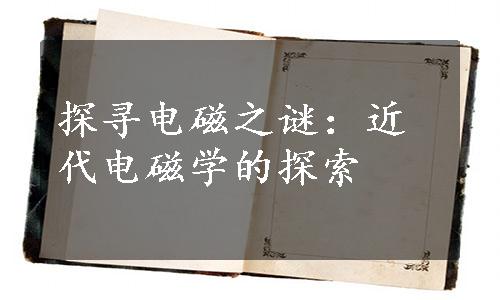 探寻电磁之谜：近
代电磁学的探索